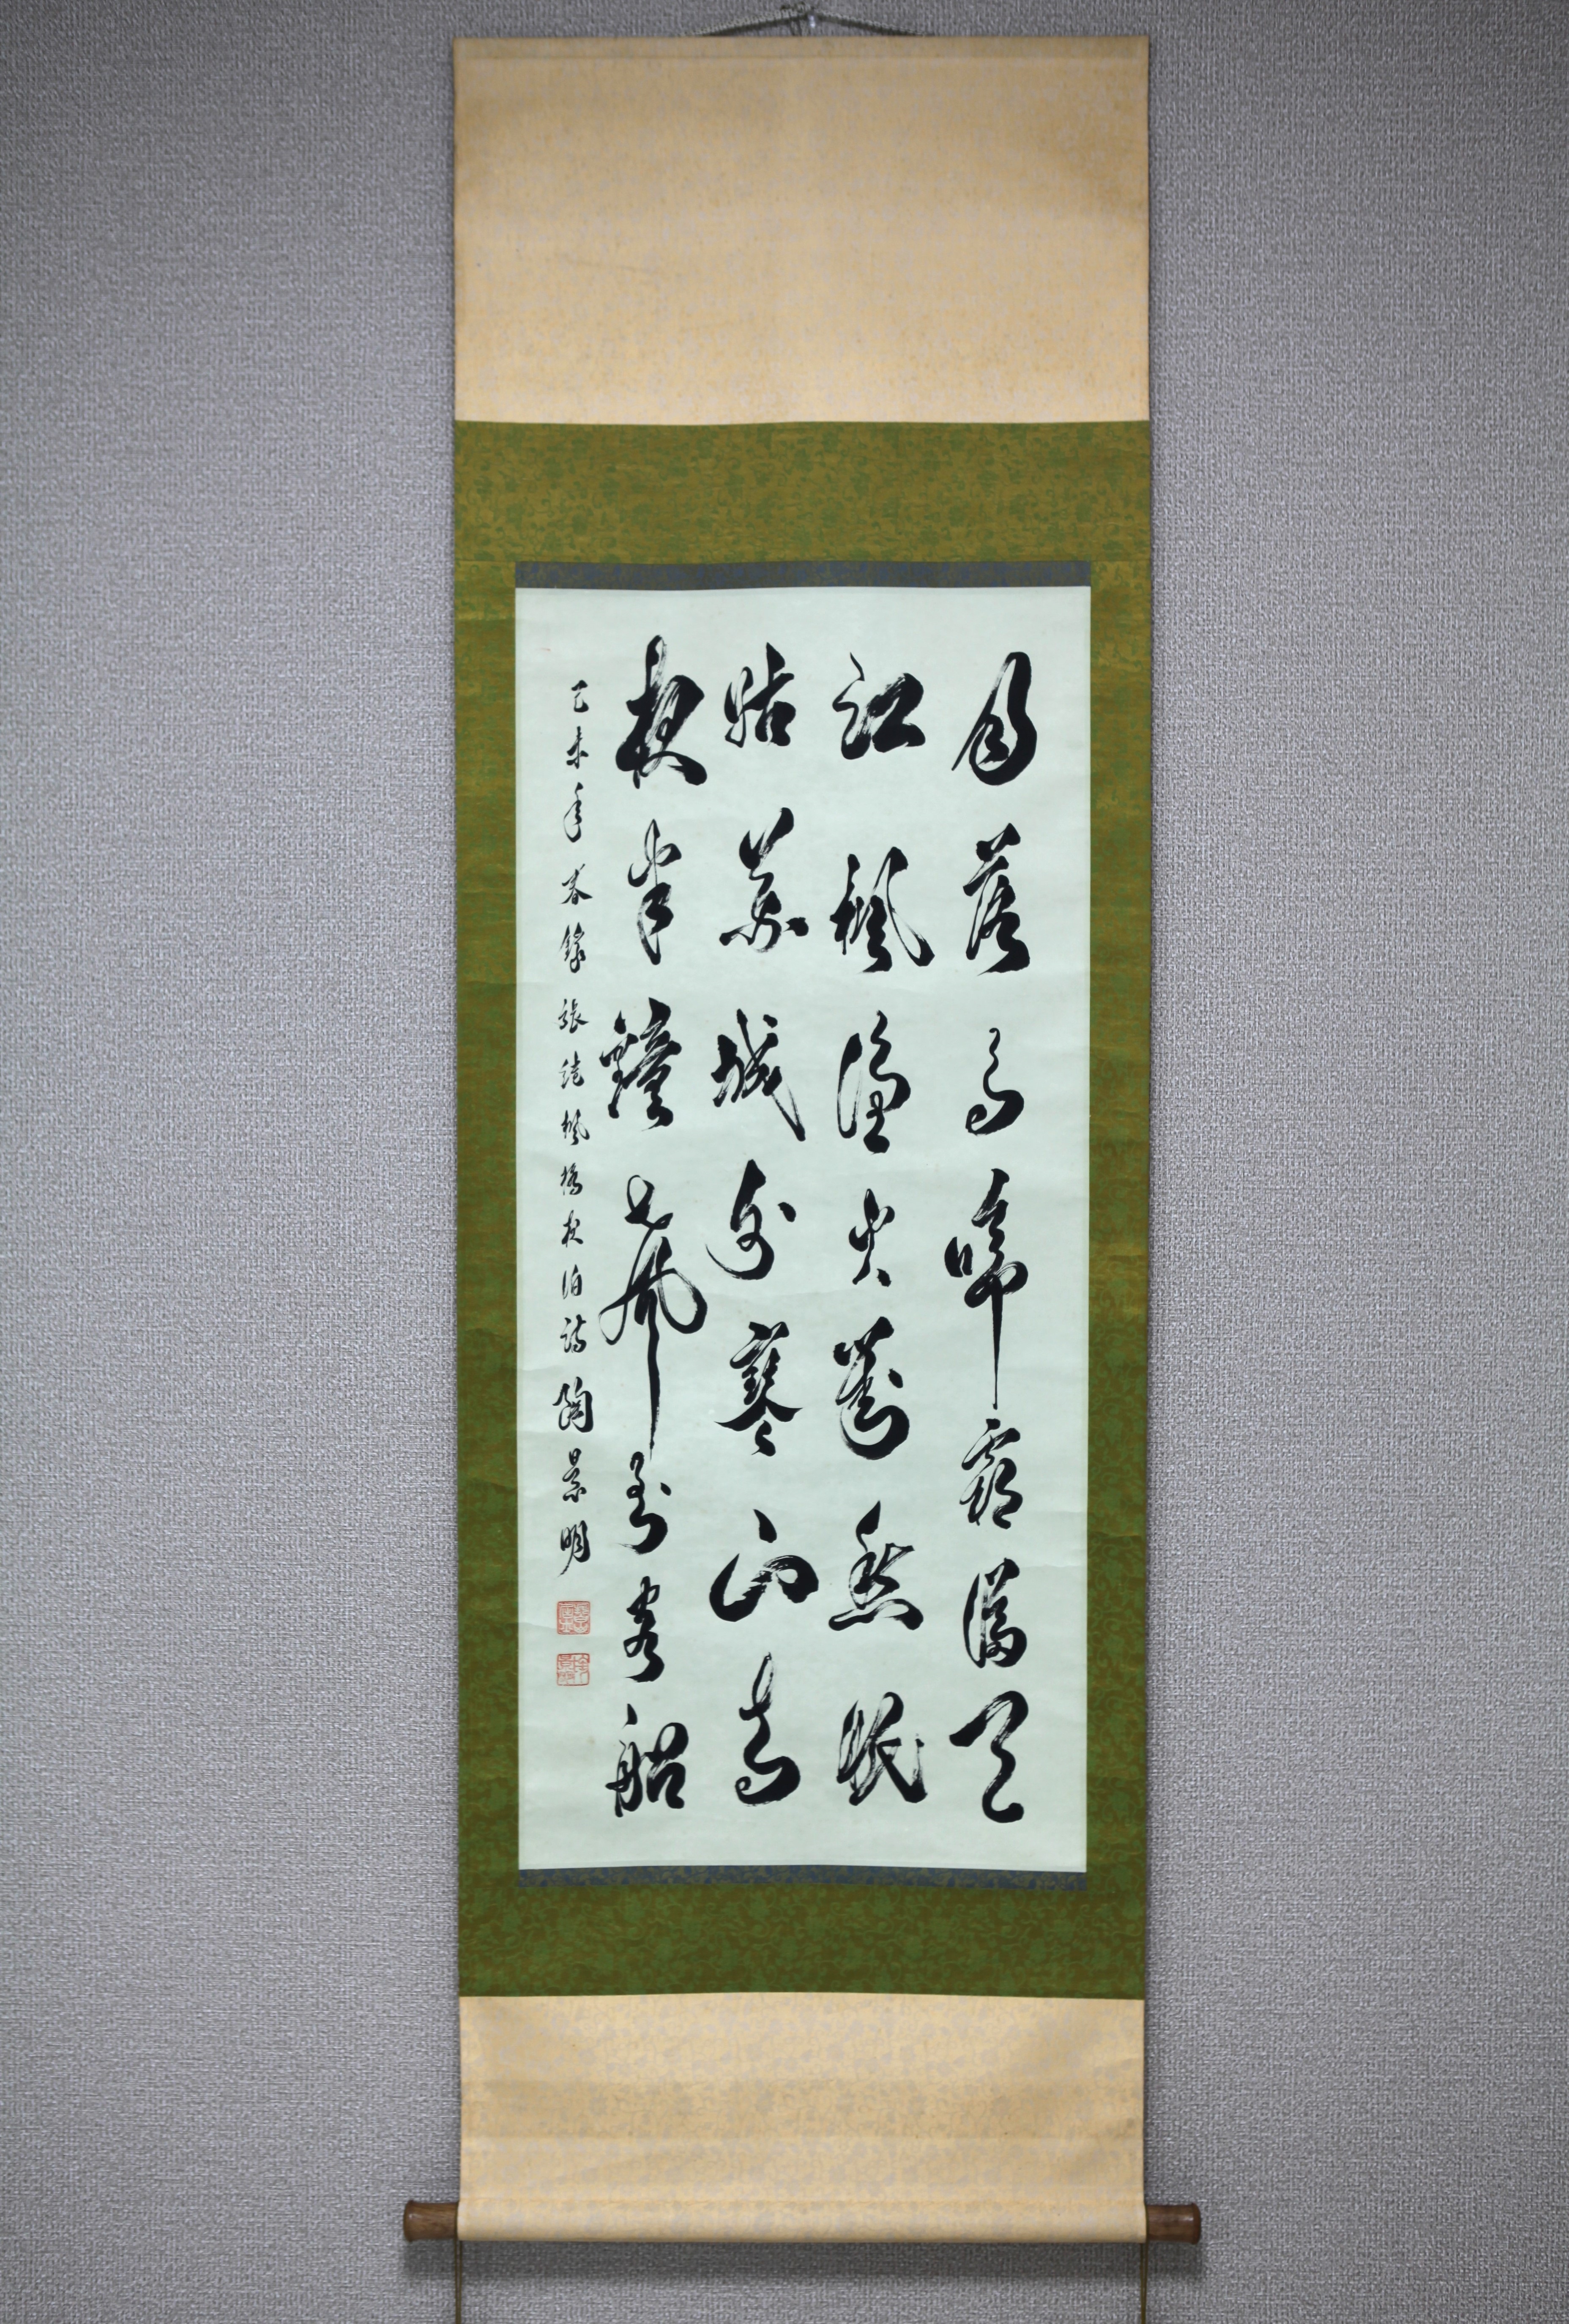 月落烏啼霜滿天
江楓漁火對愁眠
姑蘇城外寒山寺
夜半鐘聲到客船
己未年春錄張繼楓橋夜泊詩 陶景明